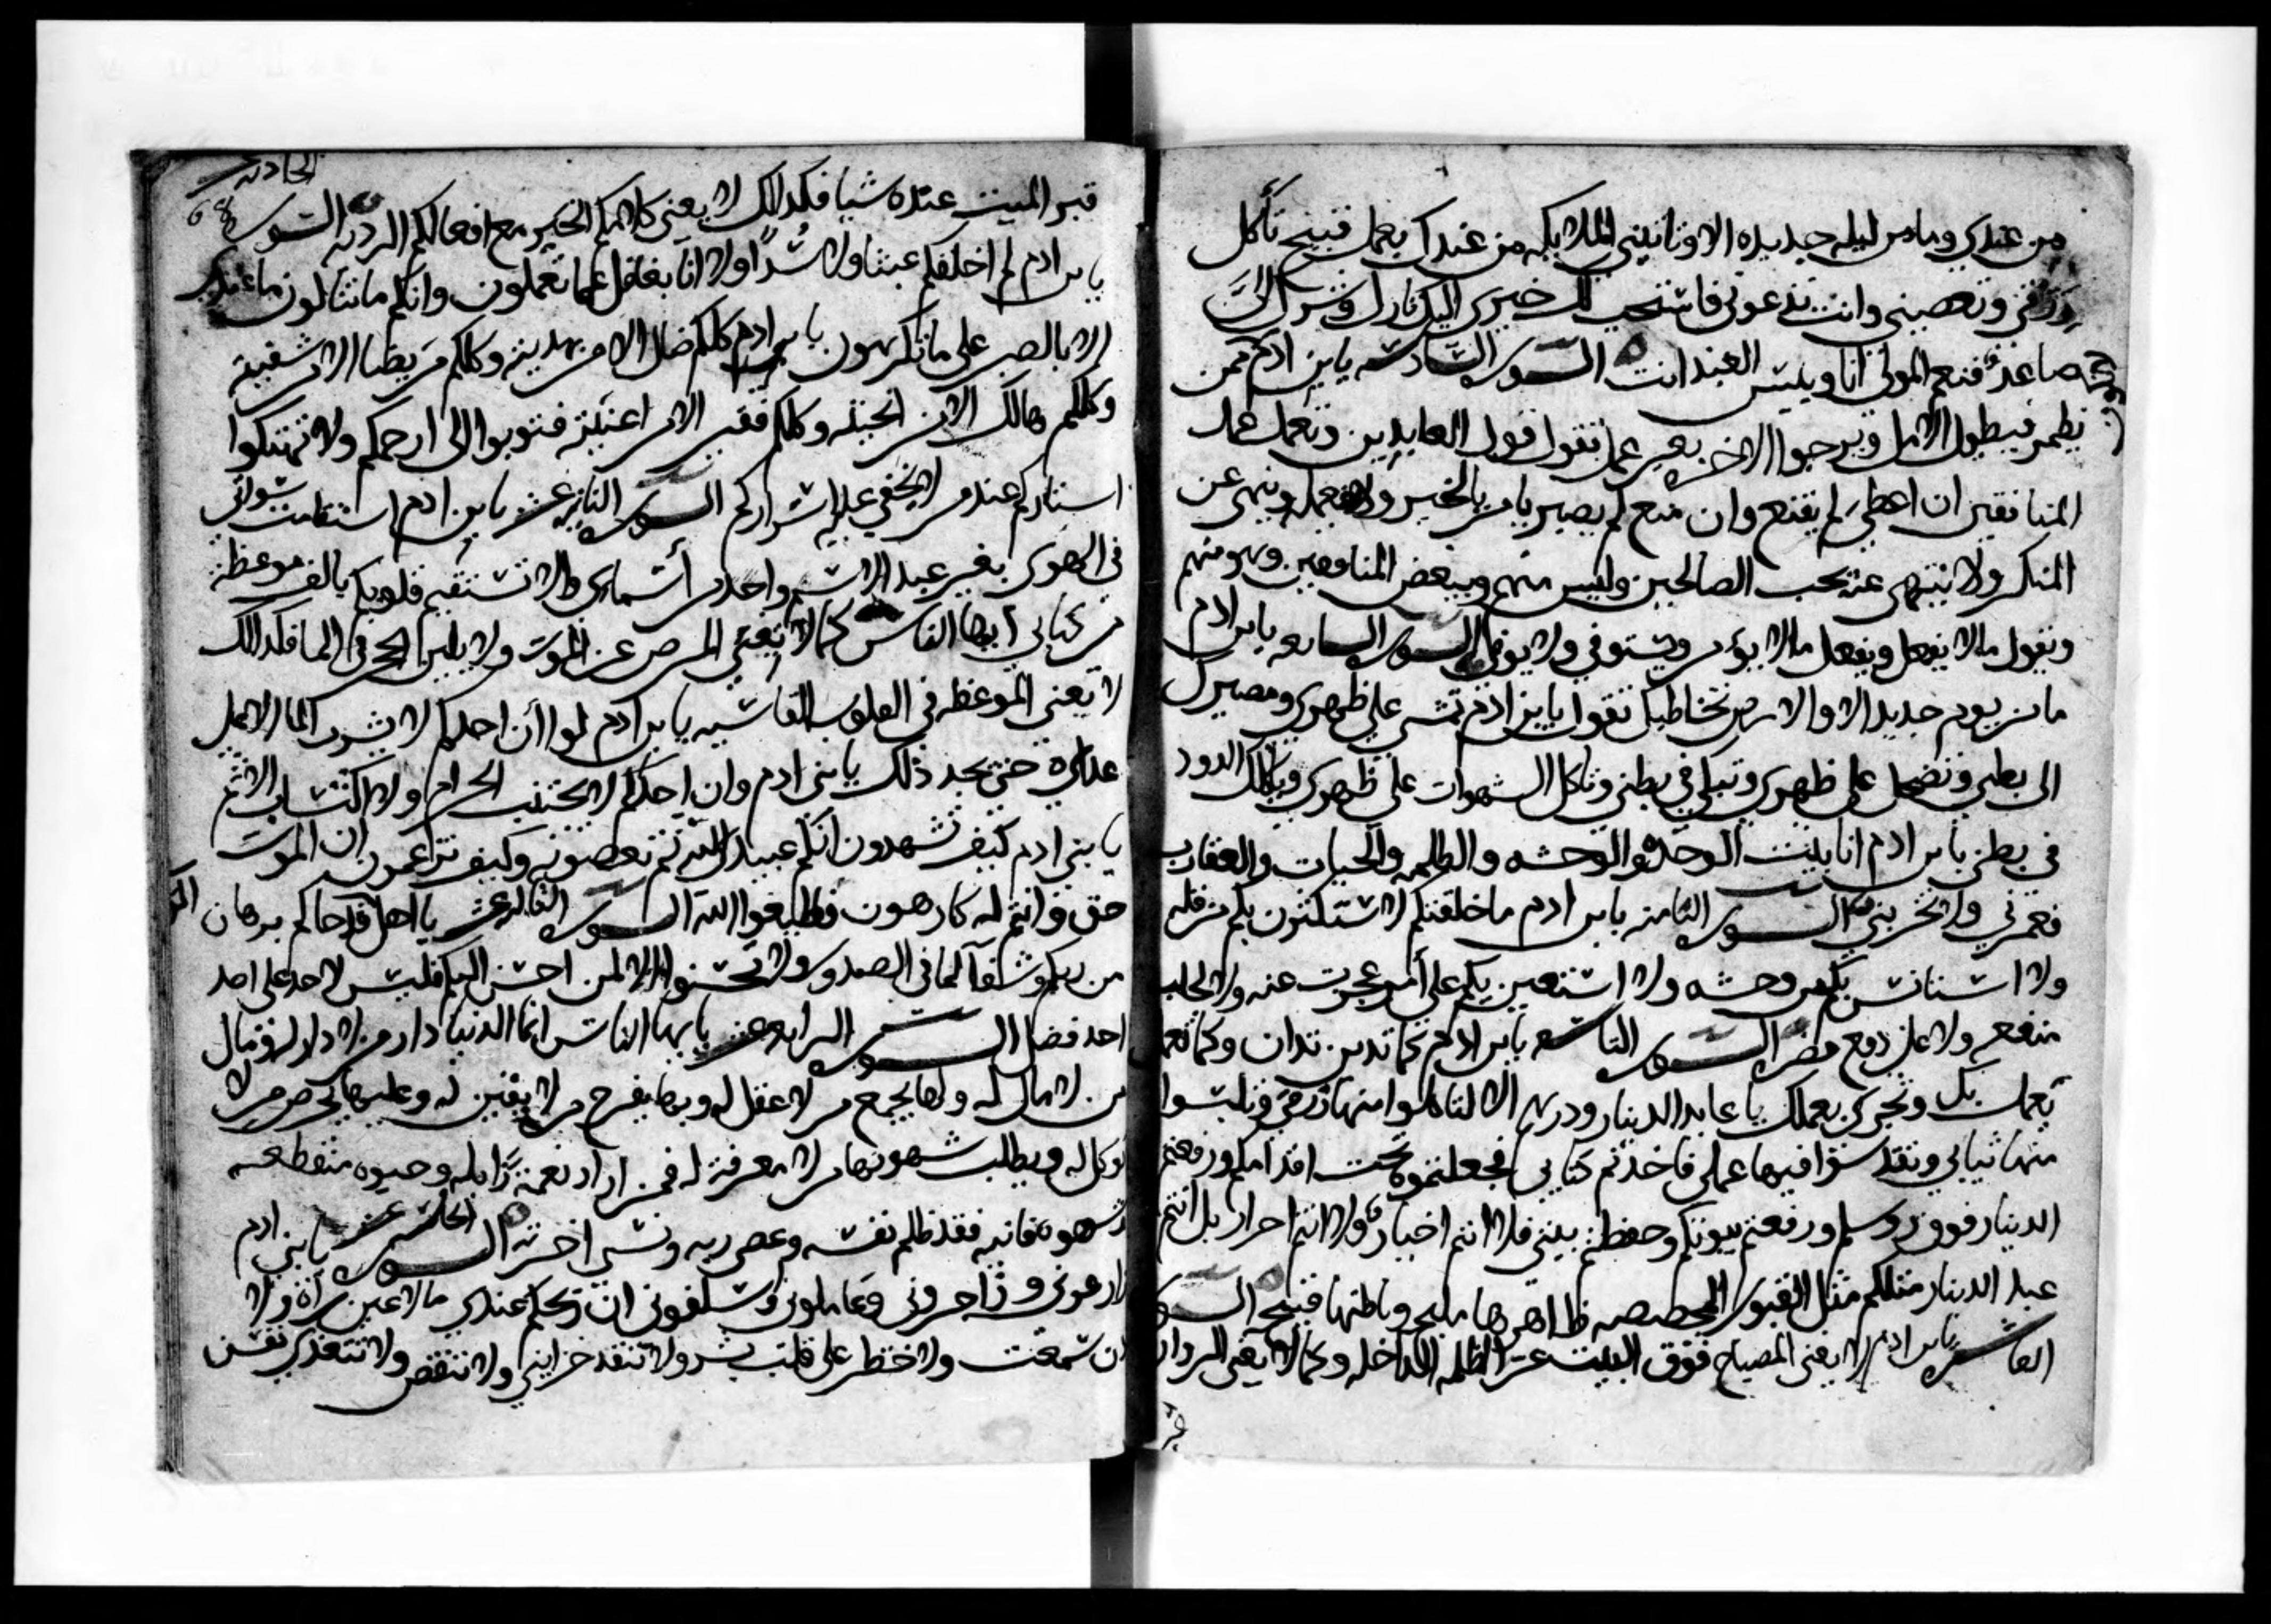 من عندي وما من ليله جديده الا وتاتيني الملايكه من عندك بعمل قبيح تأكل
رزقي وتعصيني وانت تدعوني فاستجيب لك خيري اليك نازل وشرك الي
صاعد فنعم المولى انا وبيس العبد انت السوره السادسه يابن ادم ممن
يطمن فيطول الامل ويرجوا الاخره بغير عمل تقول قول العابدين وتعمل عمل
المنافقين ان اعطي لم يقنع وان منع لم يصبر يامر بالخير ولا يفعله وينهى عن
المنكر ولا ينتهي عنه يحب الصالحين وليس منهم ويبغض المنافقين وهو منهم
وتقول ما لا يفعل ويفعل ما لا يؤمر ويستوفي ولا يوفي السوره السابعه يابن ادم
ما من يوم جديد الا والارض تخاطبك تقول يابن ادم تمشي على ظهري ومصيرك
الى بطني وتضحك على ظهري وتبكي في بطني وتاكل الشهوات على ظهري وياكلك الدود
في بطني يابن ادم انا بيت الوحده والوحشه والظلمه والحيات والعقارب
فعمرني ولا تخربني السوره الثامنه يابن ادم ما خلقتكم لاستكثرن بكم من قله
ولا استانس بكم من وحشه ولا استعين بكم على أمر عجزت عنه ولا لجلب
منفعه ولا على دفع مضره السوره التاسعه يابن ادم كما تدين تدان وكما تعمل
بعملك يا عابد الدينار ودرهم الا لتاكلوا منها رزقي وتلبسوا
منها ثيابي فاخذتم كتابي فجعلتموه تحت اقدامكم ورفعتم
الدينار فوق روسكم ورفعتم بيوتكم وحفظتم بيتي فلا انتم اخيار ولا انتم احرار بل انتم
عبد الدينار مثلكم مثل القبور المجصصه ظاهرها مليح وباطنها قبيح السوره
العاشره يابن ادم لا يغني المصباح فوق البيت عن الظلمه الداخله وكما لا يغني
الحاديه
68
قبر الميت عنده شيا فكذالك لا يغني كلامكم الخير مع افعالكم الرديه السوره
يابن ادم لم اخلقكم عبثا ولا سُداً ولا انا بغافل عما تعملون وانكم ما تنالون ما عندي
الا بالصبر على ما تكرهون يابن ادم كلكم ضال الا من هديته وكلكم مريضا الا من شفيته
وكلكم هالك الا من انجيته وكلكم فقير الا من اغنيته فتوبوا الي ارحمكم ولا تهتكوا
استاركم عند من لا يخفى عليه اسراركم السوره الثانيه عشر يابن ادم
في الهوى بغير عمد الا باسم واحد من أسماي ولا تستقيم قلوبكم بالف موعظة
من كتابي أيها الناس كما لا يغني المرض عن الموت ولا يلين الحجر في الما فكذالك
لا تغني الموعظه في القلوب القاسيه يابن ادم لو أن احدكم لا يشرب الما
حتى يجد ذلك يا بني ادم وان احدكم لا يجتنب الحرام ولا اكتساب الاثم
يا بني ادم كيف تشهدون انكم عبيد الله ثم تعصونه وكيف تزاعمون ان الموت
حق وانتم له كارهون فطيعوا الله السوره الثالثه عشر يا اهل قد جاكم برهان
من ربكم وشفآ لما في الصدور ولا تحسنوا الا لمن احسن اليكم فليس لاحد على احد
احد فضل السوره الرابعه عشر يايها الناس انما الدنيا دار من لا دار له ومال
من لا مال له ولها يجمع من لا عقل له وبها يفرح من لا يقين له وعليها يحرص من لا
توكل له ويطلب شهوتها من لا معرفة له فمن اراد نعمة زايله وحيوه منقطعه
وشهوه فانيه فقد ظلم نفسه وعصى ربه ونسى اخرته السوره الخامسه عشر يا بني ادم
وتاجروني وعاملوني وسلفوني ان ربحكم عندي مالا عين رآة ولا
اذن سمعت ولا خطر على قلب بشر ولا تنفد خزايني ولا تنقص